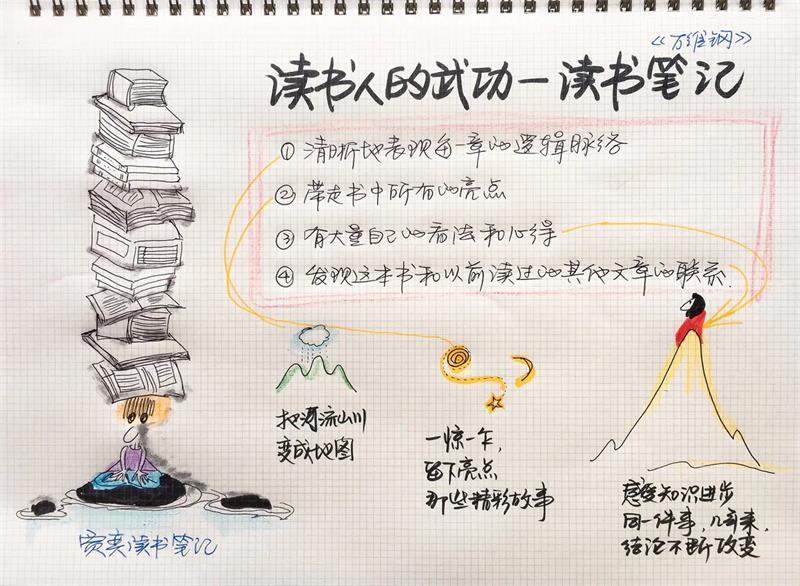 《万维钢》
读书人的武功—读书笔记
① 清晰地表现每一章的逻辑脉络
② 带走书中所有的亮点
③ 有大量自己的看法和心得
④ 发现这本书和以前读过的其他文章的联系.
把河流山川
变成地图
一惊一乍,
留下亮点
那些精彩故事
感受知识进步
同一件事,几年来,
结论不断改变
奕读书笔记